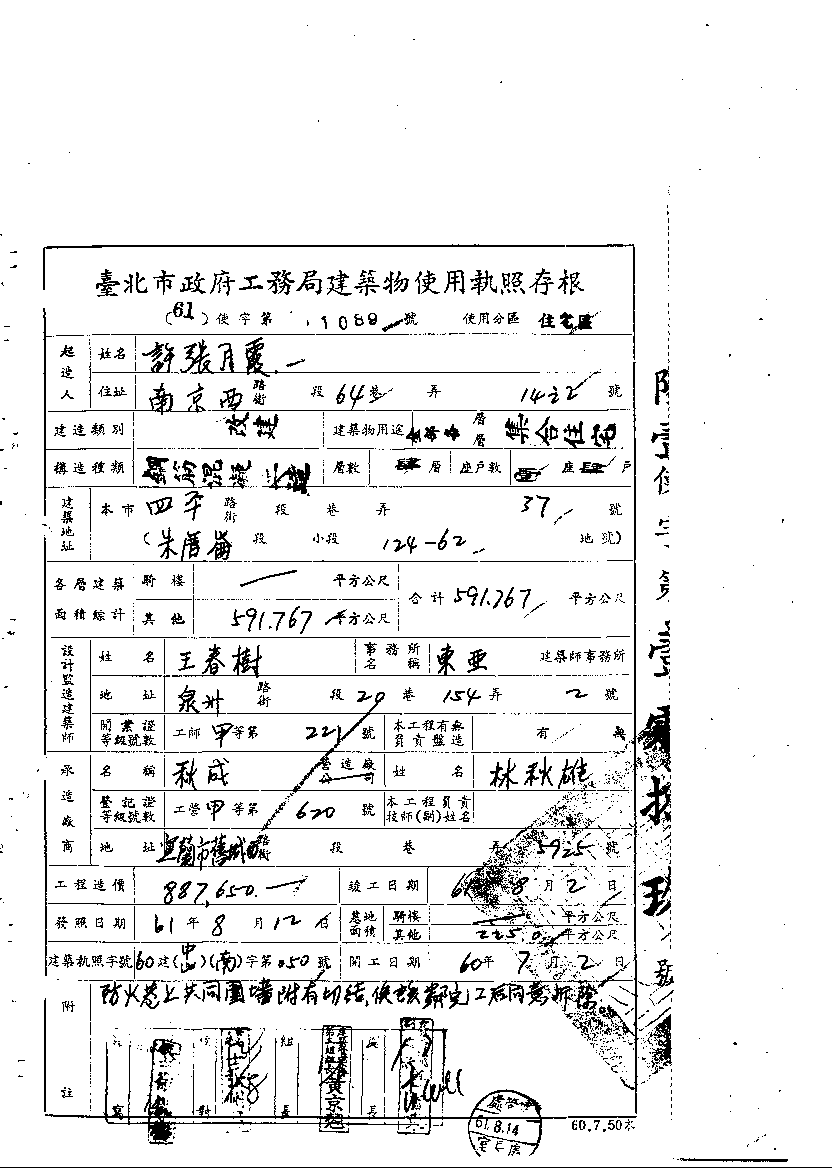 臺北市政府工務局建築物使用執照存根
(61)使字第 1089 號 使用分區 住宅區
起造人 姓名 許張月霞
住址 南京西 路街 段 64 巷 弄 14之2 號
建造類別 改建 建築物用途 層層 集合住宅
構造種類 鋼筋混凝 造 層數 肆 層 座戶數 座 肆 戶
建築地址 本市 四平 路街 段 巷 弄 37 號
(朱厝崙 段 小段 124-62 地號)
各層建築面積綜計 騎樓 平方公尺 合計 591.767 平方公尺
其他 591.767 平方公尺
設計監造建築師 姓名 王春樹 事務所名稱 東亜 建築師事務所
地址 泉州 路街 段 20 巷 154 弄 2 號
開業證等級號數 工師 甲 等第 221 號 本工程有無負責監造 有 無
承造廠商 名稱 秋成 營造廠公司 姓名 林秋雄
登記證等級號數 工營 甲 等第 620 號 本工程負責技師(副)姓名
地址 宜蘭市舊城 路街 段 巷 弄 號
工程造價 887,650. 竣工日期 61 年 8 月 2 日
發照日期 61 年 8 月 12 日 基地面積 騎樓 平方公尺
其他 225.0 平方公尺
建築執照字號 60 建(中山)(南)字第 050 號 開工日期 60 年 7 月 2 日
附註 防火巷上共同圍墻附有切結,俟 完工后同意拆除。
組長
黃京
長
61.8.14
60.7.50本
壹使字第壹 號